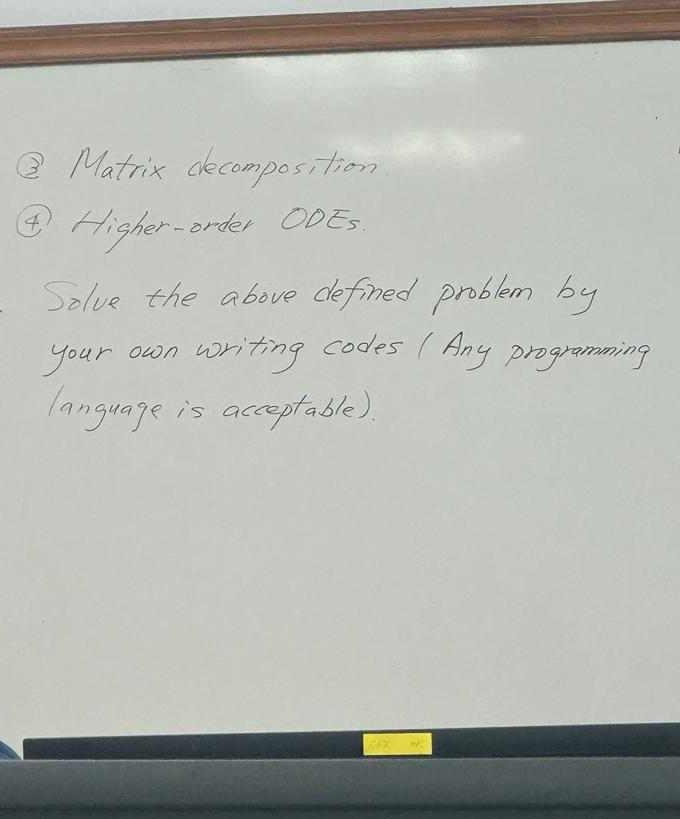 ③ Matrix decomposition.
④ Higher-order ODEs.
Solve the above defined problem by
your own writing codes (Any programming
language is acceptable).